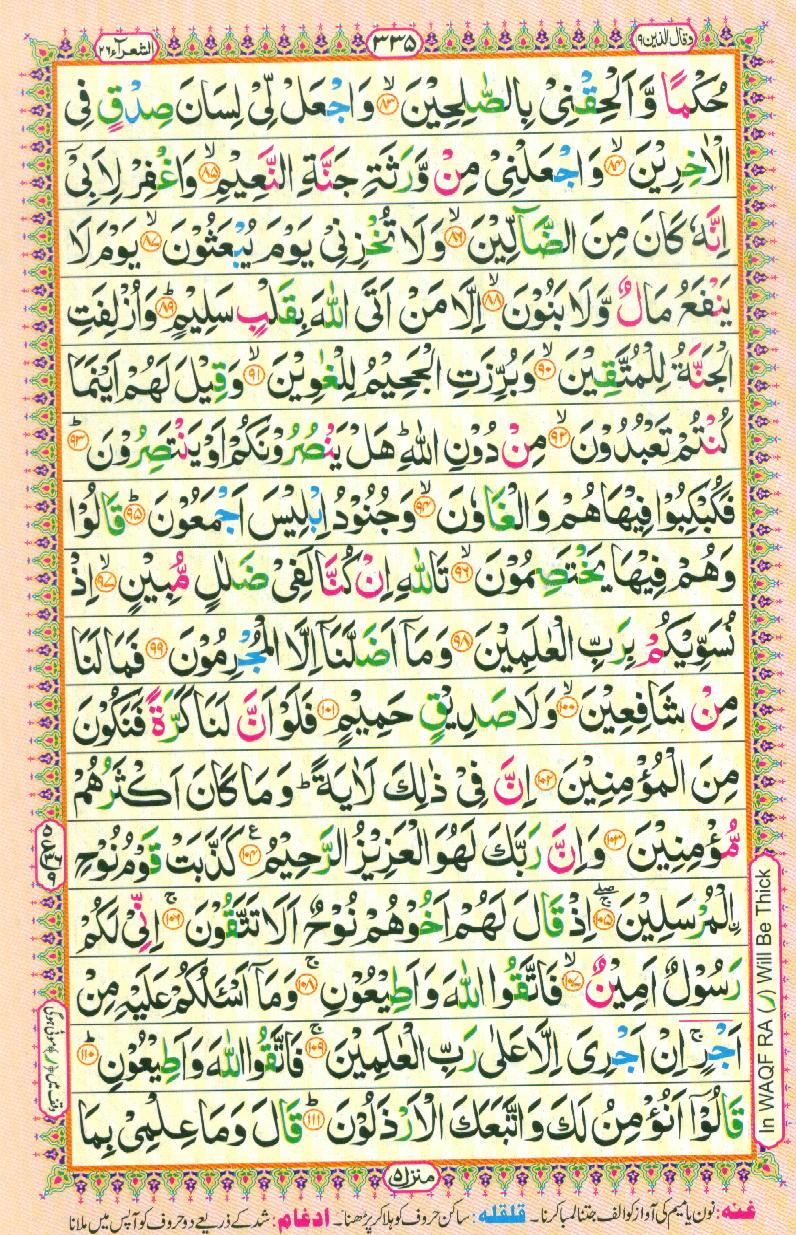 وقال الذین ۹
۳۳۵
الشعرآء ۲۶
حُكْمًا وَّ اَلْحِقْنِیْ بِالصّٰلِحِیْنَۙ۝۸۳ وَ اجْعَلْ لِّیْ لِسَانَ صِدْقٍ فِی
الْاٰخِرِیْنَۙ۝۸۴ وَ اجْعَلْنِیْ مِنْ وَّرَثَةِ جَنَّةِ النَّعِیْمِۙ۝۸۵ وَ اغْفِرْ لِاَبِیْۤ
اِنَّهٗ كَانَ مِنَ الضَّآلِّیْنَۙ۝۸۶ وَ لَا تُخْزِنِیْ یَوْمَ یُبْعَثُوْنَۙ۝۸۷ یَوْمَ لَا
یَنْفَعُ مَالٌ وَّ لَا بَنُوْنَۙ۝۸۸ اِلَّا مَنْ اَتَی اللّٰهَ بِقَلْبٍ سَلِیْمٍؕ۝۸۹ وَ اُزْلِفَتِ
الْجَنَّةُ لِلْمُتَّقِیْنَۙ۝۹۰ وَ بُرِّزَتِ الْجَحِیْمُ لِلْغٰوِیْنَۙ۝۹۱ وَ قِیْلَ لَهُمْ اَیْنَمَا
كُنْتُمْ تَعْبُدُوْنَۙ۝۹۲ مِنْ دُوْنِ اللّٰهِؕ هَلْ یَنْصُرُوْنَكُمْ اَوْ یَنْتَصِرُوْنَؕ۝۹۳
فَكُبْكِبُوْا فِیْهَا هُمْ وَ الْغَاوٗنَۙ۝۹۴ وَ جُنُوْدُ اِبْلِیْسَ اَجْمَعُوْنَؕ۝۹۵ قَالُوْا
وَ هُمْ فِیْهَا یَخْتَصِمُوْنَۙ۝۹۶ تَاللّٰهِ اِنْ كُنَّا لَفِیْ ضَلٰلٍ مُّبِیْنٍۙ۝۹۷ اِذْ
نُسَوِّیْكُمْ بِرَبِّ الْعٰلَمِیْنَ۝۹۸ وَ مَاۤ اَضَلَّنَاۤ اِلَّا الْمُجْرِمُوْنَ۝۹۹ فَمَا لَنَا
مِنْ شَافِعِیْنَۙ۝۱۰۰ وَ لَا صَدِیْقٍ حَمِیْمٍ۝۱۰۱ فَلَوْ اَنَّ لَنَا كَرَّةً فَنَكُوْنَ
مِنَ الْمُؤْمِنِیْنَ۝۱۰۲ اِنَّ فِیْ ذٰلِكَ لَاٰیَةًؕ وَ مَا كَانَ اَكْثَرُهُمْ
مُّؤْمِنِیْنَ۝۱۰۳ وَ اِنَّ رَبَّكَ لَهُوَ الْعَزِیْزُ الرَّحِیْمُ۠۝۱۰۴ كَذَّبَتْ قَوْمُ نُوْحِ
ِ۟الْمُرْسَلِیْنَۚۖ۝۱۰۵ اِذْ قَالَ لَهُمْ اَخُوْهُمْ نُوْحٌ اَلَا تَتَّقُوْنَۚ۝۱۰۶ اِنِّیْ لَكُمْ
رَسُوْلٌ اَمِیْنٌۙ۝۱۰۷ فَاتَّقُوا اللّٰهَ وَ اَطِیْعُوْنِۚ۝۱۰۸ وَ مَاۤ اَسْـَٔلُكُمْ عَلَیْهِ مِنْ
اَجْرٍۚ اِنْ اَجْرِیَ اِلَّا عَلٰی رَبِّ الْعٰلَمِیْنَۚ۝۱۰۹ فَاتَّقُوا اللّٰهَ وَ اَطِیْعُوْنِؕ۝۱۱۰
قَالُوْۤا اَنُؤْمِنُ لَكَ وَ اتَّبَعَكَ الْاَرْذَلُوْنَؕ۝۱۱۱ قَالَ وَ مَا عِلْمِیْ بِمَا
منزل ۵
In WAQF RA (ر) Will Be Thick
وقف میں ﴿ر﴾ موٹی ہوگی
غنہ: نون یا میم کی آواز کو الف جتنا لمبا کرنا۔ قلقلہ: ساکن حروف کو ہلا کر پڑھنا۔ ادغام: شد کے ذریعے دو حروف کو آپس میں ملانا